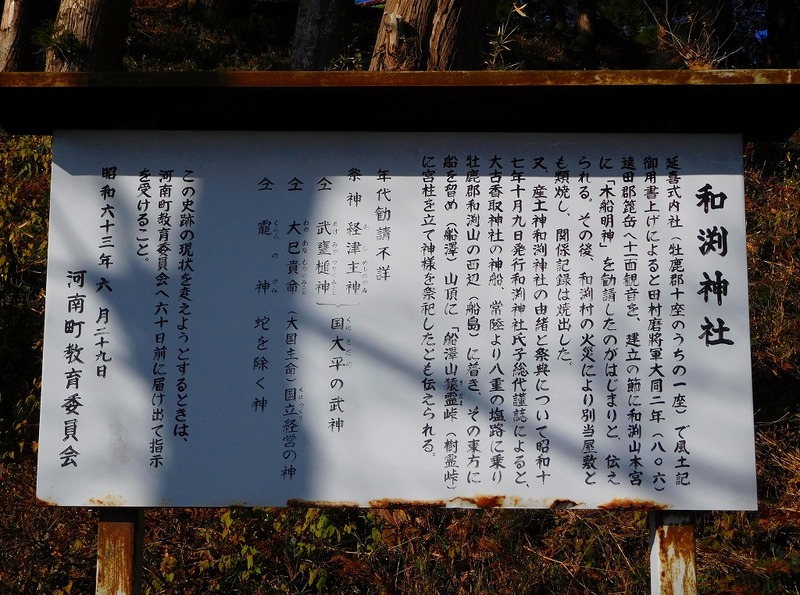 和渊神社
延喜式内社(牡鹿郡十座のうちの一座)で風土記
御用書上げによると田村麿將軍大同二年(八〇六)
遠田郡箆岳へ十一面観音を、建立の節に和渕山本宮
に「木船明神」を勧請したのがはじまりと、伝え
られる。その後、和渕村の火災により別当屋敷と
も類焼し、関係記録は焼出した。
又、産土神和渕神社の由緒と祭典について昭和十
七年十月九日発行和渕神社氏子総代謹誌によると、
大古香取神社の神船、常陸より八重の塩路に乗り
牡鹿郡和渕山の西辺(船島)に着き、その東方に
船を留め(船澤)山頂に「船澤山猿霊峠(樹霊峠)
に宮柱を立て神様を祭祀したとも伝えられる。
年代勧請不詳
祭神 経津主神
仝 武甕槌神
国大平の武神
仝 大巳貴命(大国主命)国立経営の神
仝 龗神 蛇を除く神
この史跡の現状を変えようとするときは、
河南町教育委員会へ六十日前に届け出て指示
を受けること。
昭和六十三年 六月二十九日
河南町教育委員会